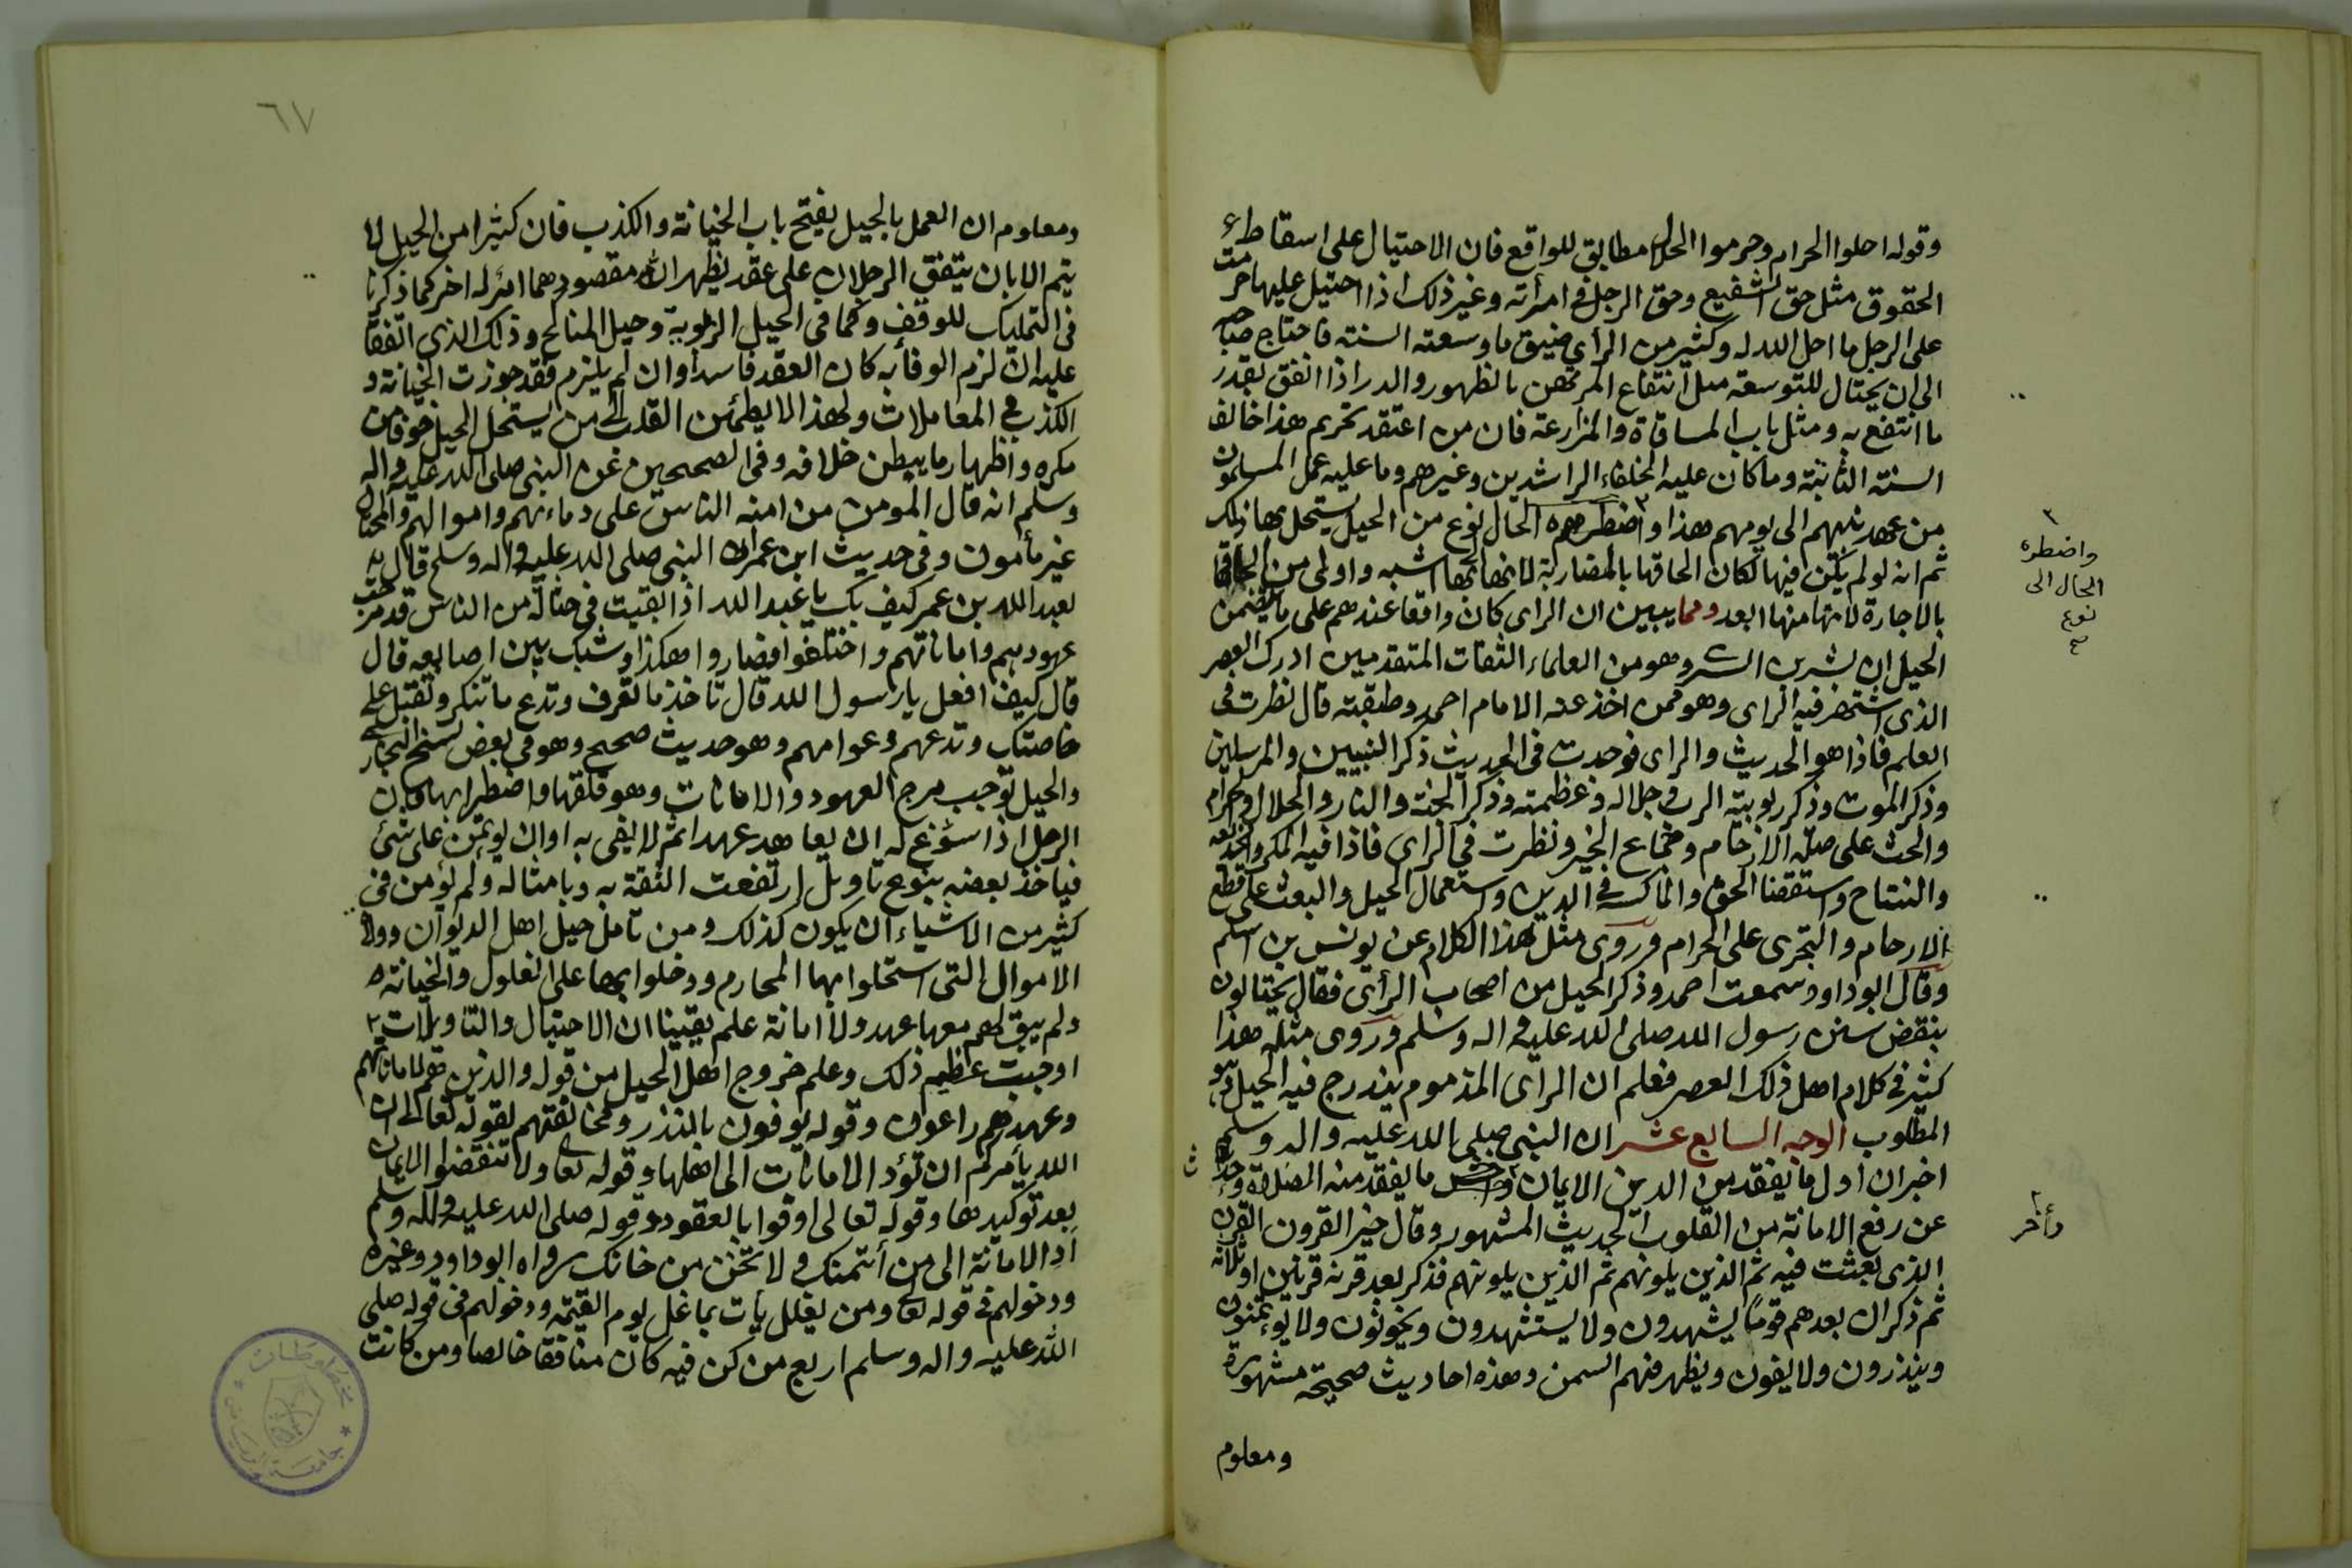 وقوله احلوا الحرام وحرموا الحلال مطابق للواقع فان الاحتيال على اسقاط
الحقوق مثل حق الشفيع وحق الرجل في امرأته وغير ذلك اذا احتيل عليها حرمت
على الرجل ما احل الله له وكثير من الرأي ضيق ما وسعته السنة فاحتاج صاحبه
الى ان يحتال للتوسعة مثل انتفاع المرتهن بالظهور والدر اذا انفق بقدر
ما انتفع به ومثل باب المساقاة والمزارعة فان من اعتقد تحريم هذا خالف
السنة الثابتة وما كان عليه الخلفاء الراشدين وغيرهم وما عليه عمل المسلمون
من عهد نبيهم الى يومهم هذا واضطره الحال لنوع من الحيل يستحل بها ذلك
ثم انه لو لم يكن فيها لكان الحاقها بالمضاربة لانها بها اشبه واولى من الحاقها
بالاجارة لانها منها ابعد ومما يبين ان الراي كان واقعا عندهم على ما يتضمن
الحيل ان بشر بن السري وهو من العلماء الثقات المتقدمين ادرك العصر
الذي اشتهر فيه الراى وهو ممن اخذ عنه الامام احمد وطبقته قال نظرت فى
العلم فاذا هو الحديث والراى فوجدت فى الحديث ذكر النبيين والمرسلين
وذكر الموت وذكر ربوبية الرب وجلاله وعظمته وذكر الجنة والنار والحلال والحرام
والحث على صلة الارحام وجماع الخير ونظرت في الراى فاذا فيه المكر والخديعة
والتشاح واستقضا الحق والماكسة في الدين واستعمال الحيل والبعث على قطع
الارحام والتجرى على الحرام وروى مثل هذا الكلام عن يونس بن اسلم
وقال ابو داود سمعت احمد وذكر الحيل من اصحاب الرأى فقال يحتالون
بنقض سنن رسول الله صلى الله عليه واله وسلم وروى مثله هذا
كثير في كلام اهل ذلك العصر فعلم ان الراى المذموم يندرج فيه الحيل وهو
المطلوب الوجه السابع عشر ان النبي صلى الله عليه واله وسلم
اخبر ان اول ما يفقد من الدين الايمان ما يفقد منه الصلاة وحدث
عن رفع الامانة من القلوب الحديث المشهور وقال خير القرون القرن
الذى بعثت فيه ثم الذين يلونهم ثم الذين يلونهم فذكر بعد قرنه قرنين او ثلاثة
ثم ذكر ان بعدهم قوما يشهدون ولا يستشهدون ويخونون ولا يؤتمنون
وينذرون ولا يفون ويظهر فيهم السمن وهذه احاديث صحيحة مشهورة
ومعلوم
٢
واضطره
الحال الى
نوع
صح
٢
وآخر
٦٧
ومعلوم ان العمل بالحيل يفتح باب الخيانة والكذب فان كثيرا من الحيل لا
يتم الا بان يتفق الرجلان على عقد يظهر انه مقصودهما امر له اخر كما ذكرنا
فى التمليك للوقف وكما فى الحيل الربوية وحيل المناكح وذلك الذى اتفقا
عليه ان لزم الوفا به كان العقد فاسدا وان لم يلزم فقد جوزت الخيانة و
الكذب في المعاملات ولهذا لا يطمئن القلب الى من يستحل الحيل خوفا من
مكره واظهار ما يبطن خلافه وفى الصحيحين عن النبى صلى الله عليه واله
وسلم انه قال المومن من امنه الناس على دماءهم واموالهم والمحتال
غير مأمون وفى حديث ابن عمر ان النبى صلى الله عليه واله وسلم قال
لعبد الله بن عمر كيف بك يا عبد الله اذا بقيت في حثالة من الناس قد مرجت
عهودهم واماناتهم واختلفوا فصاروا هكذا وشبك بين اصابعه قال
قال كيف افعل يا رسول الله قال تاخذ ما تعرف وتدع ما تنكر وتقبل على
خاصتك وتدعهم وعوامهم وهو حديث صحيح وهو في بعض نسخ البخارى
والحيل توجب مرج العهود والامانات وهو قلقها واضطرابها فان
الرجل اذا سوغ له ان يعاهد عهدا ثم لا يفى به او ان يوتمن على شئ
فياخذ بعضه بنوع تاويل ارتفعت الثقة به وبامثاله ولم يؤمن فى
كثير من الاشياء ان يكون كذلك ومن تامل حيل اهل الديوان وولاة
الاموال التى استحلوا بها المحارم ودخلوا بها على الغلول والخيانة
ولم يبق لهم معها عهد ولا امانة علم يقينا ان الاحتيال والتاويلات
اوجبت عظيم ذلك وعلم خروج اهل الحيل من قوله والذين هم لاماناتهم
وعهدهم راعون وقوله يوفون بالنذر ومخالفتهم لقوله تعالى ان
الله يأمركم ان تؤد الامانات الى اهلها وقوله تعالى ولا تنقضوا الايمان
بعد توكيدها وقوله تعالى اوفوا بالعقود وقوله صلى الله عليه واله وسلم
أد الامانة الى من أتمنك ولا تخن من خانك رواه ابو داود وغيره
ودخولهم في قوله تعالى ومن يغلل يأت بما غل يوم القيمة ودخولهم فى قوله صلى
الله عليه واله وسلم اربع من كن فيه كان منافقا خالصا ومن كانت